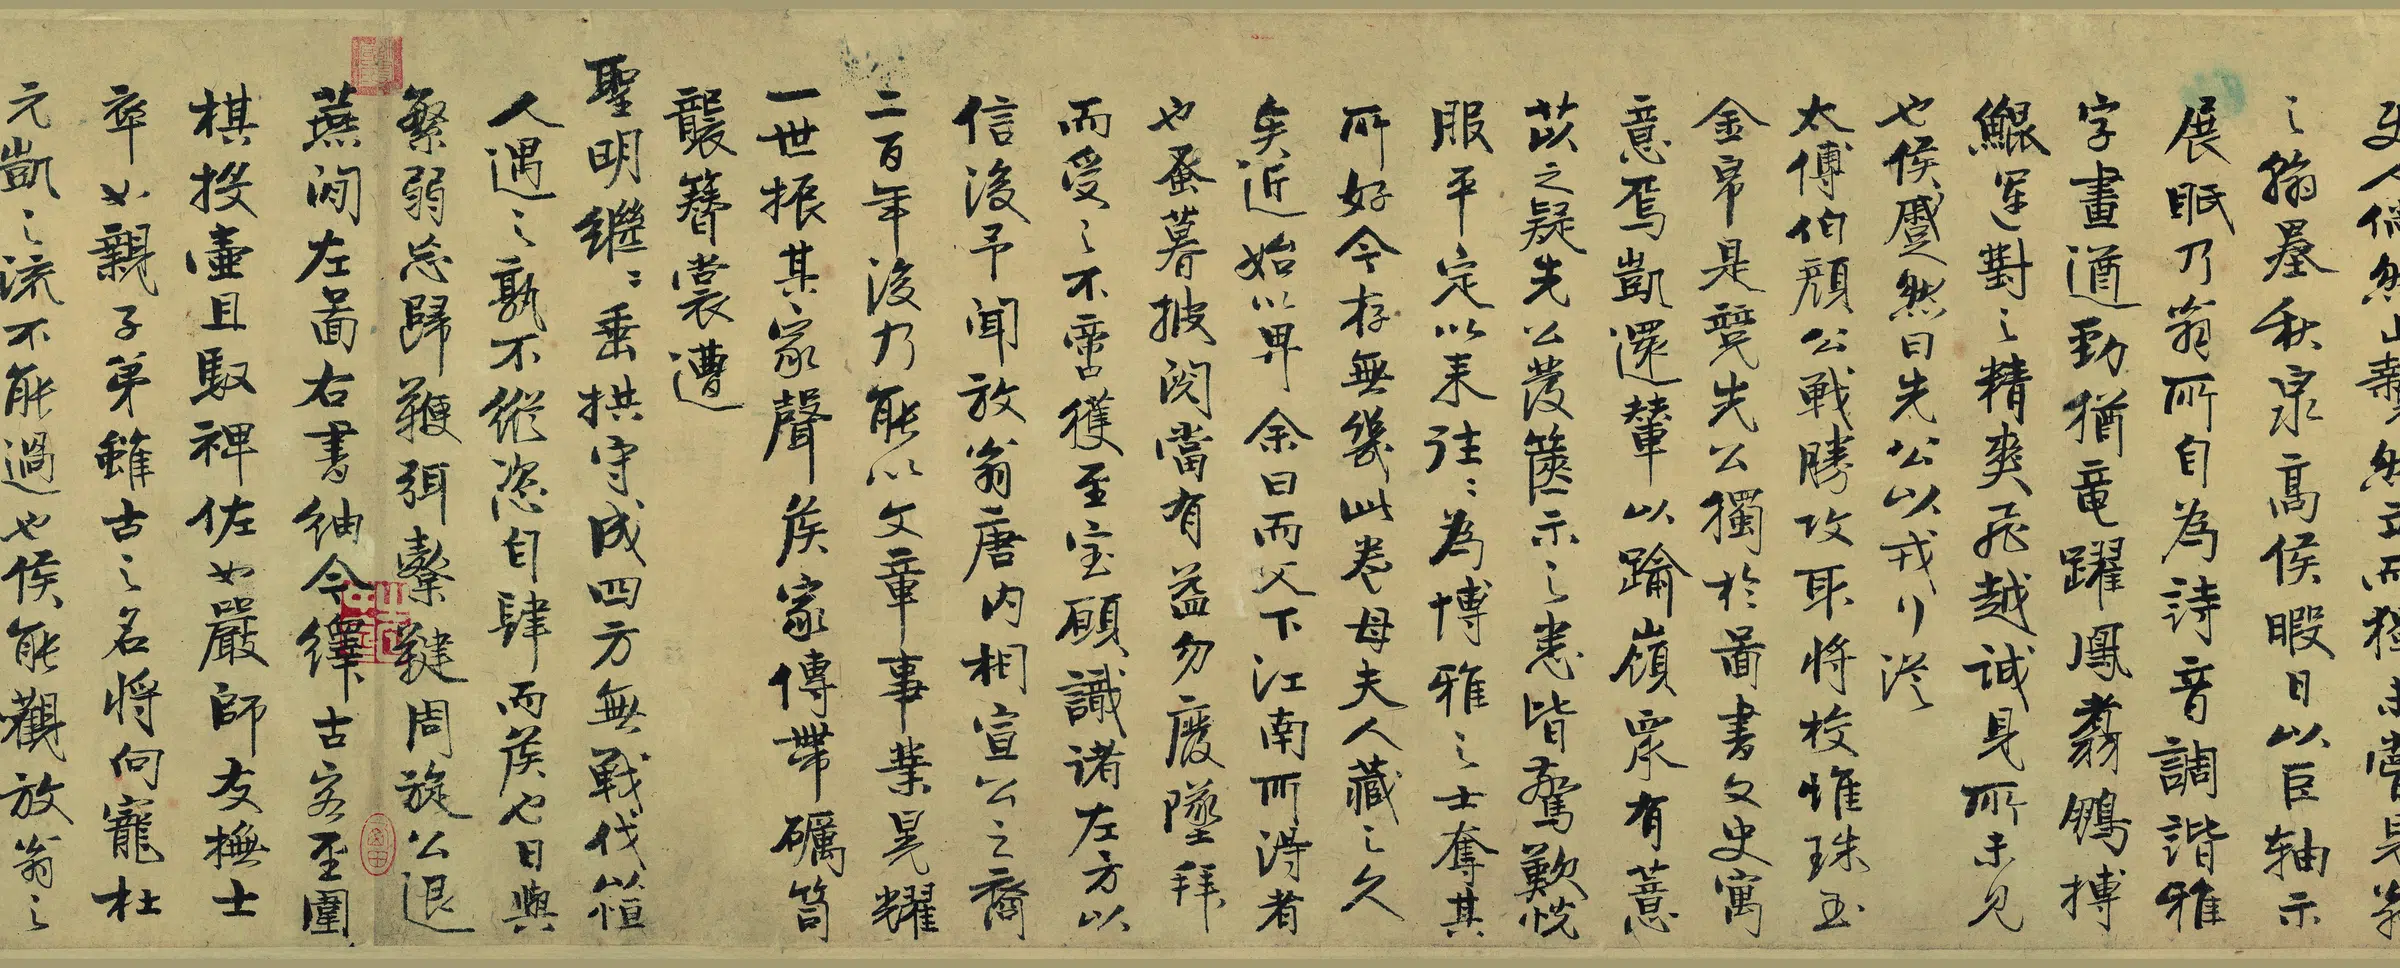 之翰墨秋泉高侯暇日以巨轴示
展眂乃翁所自為詩音調諧雅
字畫遒勁猶竜躍鳳翥鵬摶
鯤運對之精爽飛越誠身所未見
也侯蹙然曰先公以戎行從
太傅伯顔公戰勝攻取将校惟珠玉
金帛是競先公獨於啚書文史寓
意焉凱還輦以踰嶺衆有薏
苡之疑先公發篋示之悉皆驚歎悦
服平定以来往往為博雅之士奪其
所好今存無幾此卷母夫人藏之久
矣近始以畀余曰而父下江南所淂者
也蚤暮披閱當有益勿廢墜拜
而受之不啻獲至宝願識诸左方以
信後予聞放翁唐内相宣公之裔
二百年後乃能以文章事業晃耀
一世振其家聲侯家傳帶礪笥
襲簪裳遭
聖明繼繼垂拱守成四方無戰伐恒
人遇之孰不縱恣自肆而侯也日與
繁弱忘歸鞭弭櫜鞬周旋公退
燕閒左啚右書紬今繹古客至圍
棋投壷且馭裨佐如嚴師友撫士
卒如親子弟雖古之名将向寵杜
元凱之流不能過也侯能觀放翁之